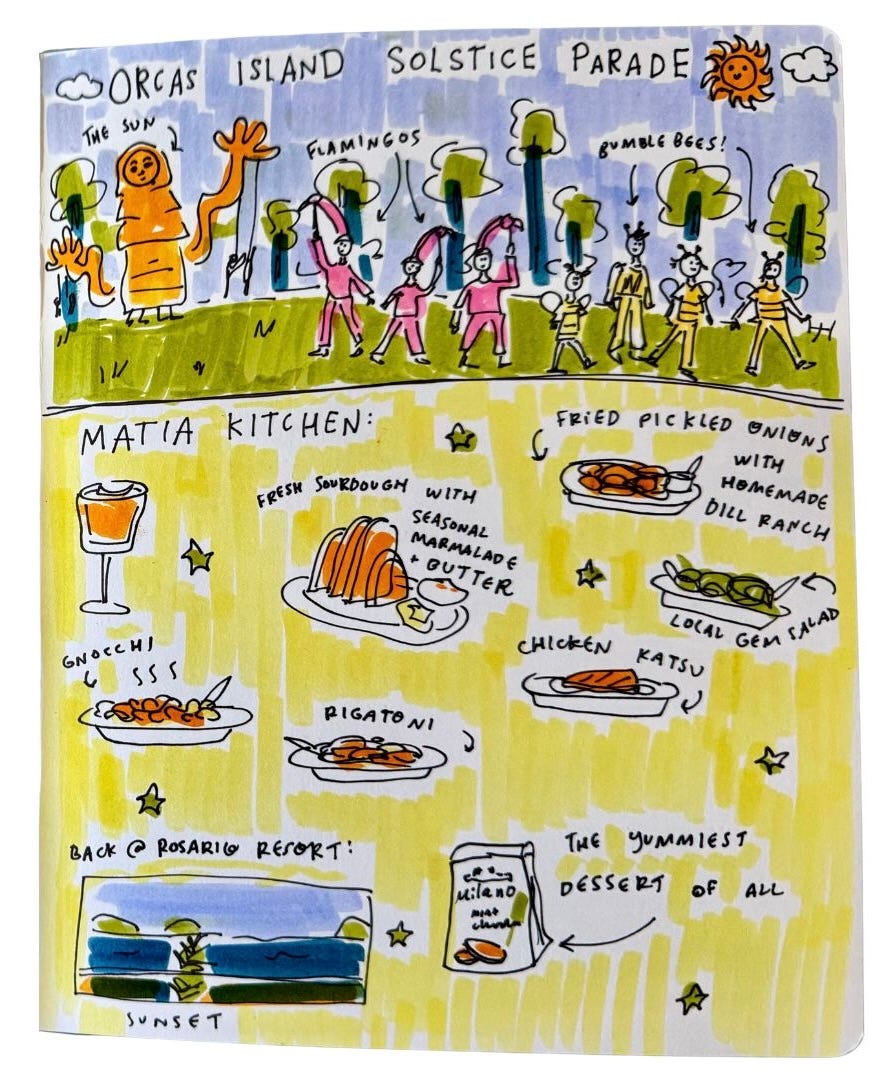 ORCAS ISLAND SOLSTICE PARADE
THE SUN
FLAMINGOS
BUMBLE BEES!
MATIA KITCHEN:
FRESH SOURDOUGH WITH
SEASONAL
MARMALADE
+ BUTTER
FRIED PICKLED ONIONS
WITH
HOMEMADE
DILL RANCH
LOCAL GEM SALAD
GNOCCHI
CHICKEN KATSU
RIGATONI
BACK @ ROSARIO RESORT:
SUNSET
Milano
mint
THE YUMMIEST
DESSERT OF ALL